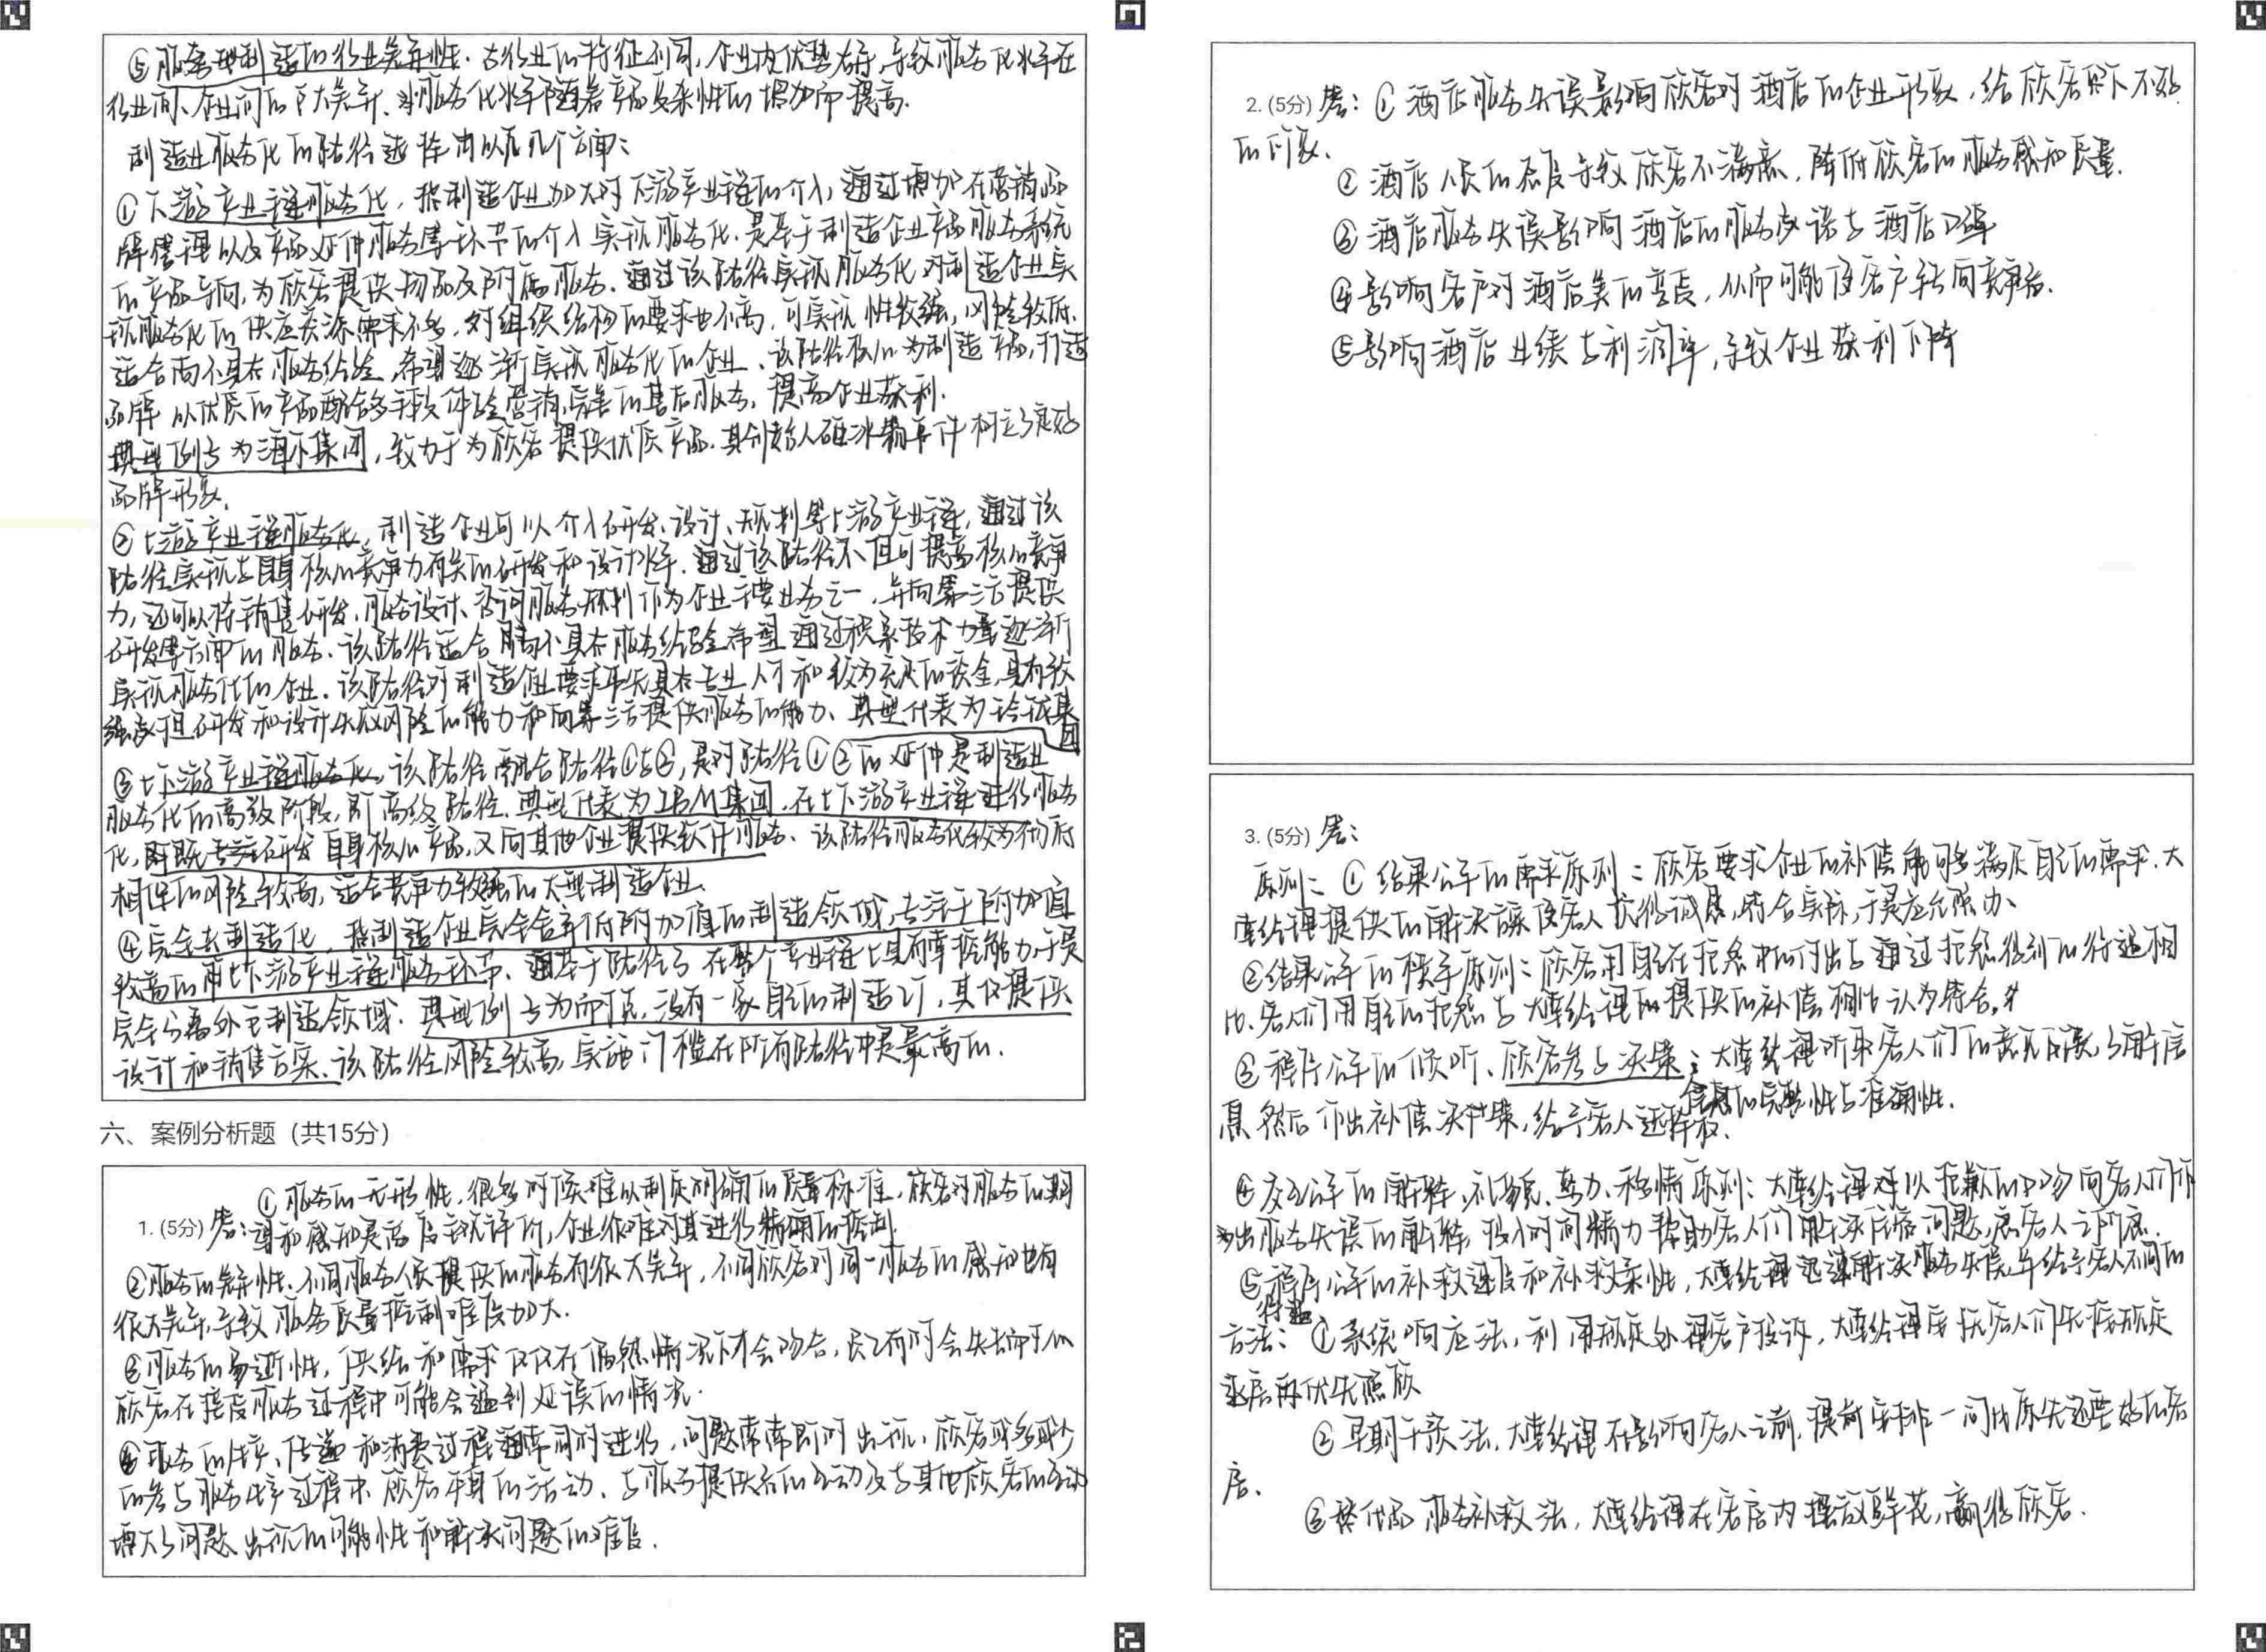 ⑤服务型制造的行业差异性。各行业的特征不同，企业内优势各异，导致服务化水平在
行业间、企业间的巨大差异、服务化水平随着产品复杂性的增加而提高。
制造业服务化的路径选择有以后几个方面：
①下游产业链服务化，指制造企业加大对下游产业链的介入，通过增加在营销、品
牌管理以及产品延伸服务等环节的介入实现服务化。是基于制造企业产品服务系统
的产品导向，为顾客提供物品及附属服务。通过该路径实现服务化对制造企业实
现服务化的供应资源需求不多，对组织结构的要求也不高，可实现性较强，风险较低。
适合尚不具有服务经验，希望逐渐实现服务化的企业、该路径核心为制造产品，打造
品牌 以优质的产品配合多手段体验营销、完善的售后服务，提高企业获利。
典型例子为海尔集团，致力于为顾客提供优质产品。其创始人砸冰箱事件树立了良好
品牌形象。
②上游产业链服务化，制造企业可以介入研发、设计、规划等上游产业链，通过该
路径实现与自身核心竞争力有关的研发和设计水平。通过该路径不但可提高核心竞争
力，还可以将销售研发，服务设计、咨询服务规划作为企业主要业务之一，并向第三方提供
研发等方面的服务。该路径适合尚不具有服务经验希望通过积累技术力量逐渐
实现服务化的企业。该路径对制造企业要求率先具有专业人才和较为充沛的资金，具有较
强承担研发和设计失败风险的能力和向第三方提供服务的能力、典型代表为陕鼓集
团
③上下游产业链服务化，该路径融合路径①与②，是对路径①②的延伸是制造业
服务化的高级阶段，即高级路径。典型代表为IBM集团，在上下游产业链进行服务
化，既专注研发自身核心产品，又向其他企业提供软件服务、该路径服务化较为彻底
相伴的风险较高，适合竞争力较强的大型制造企业。
④完全去制造化，指制造企业完全舍弃低附加值的制造领域，专注于附加值
较高的上下游产业链服务环节，基于路径③在整个产业链上具有掌控能力，于是
完全分离外包制造领域。典型例子为耐克，没有一家自己的制造工厂，其仅提供
设计和销售方案。该路径风险较高，实施门槛在所有路径中是最高的。
六、案例分析题（共15分）
①服务的无形性，很多时候难以制定明确的质量标准，顾客对服务的期
1. (5分) 答：望和感知是高度主观评价，企业很难对其进行精确的控制。
②服务的差异性、不同服务人员提供的服务有很大差异，不同顾客对同一服务的感知也有
很大差异，导致服务质量控制难度加大。
③服务的易逝性，供给和需求仅仅在偶然情况下才会吻合，长久有时会失去部分的
顾客在接受服务过程中可能会遇到延误的情况。
④服务的生产、传递和消费过程通常同时进行，问题常常即时出现，顾客或多或少
的参与服务生产过程中 顾客本身的活动、与服务提供者的互动及与其他顾客的互动
增大了问题出现的可能性和解决问题的难度。
2. (5分) 答：①酒店服务失误影响顾客对酒店的企业形象，给顾客留下不好
的印象。
②酒店人员的态度导致顾客不满意，降低顾客的服务感知质量。
③酒店服务失误影响酒店的服务承诺与酒店口碑
④影响客户对酒店美的喜爱，从而可能使客户转向竞争者。
⑤影响酒店业绩与利润率，导致企业获利下降
3. (5分) 答：
原则：①结果公平的需求原则：顾客要求企业的补偿能够满足自己的需求。大
堂经理提供的解决方案使客人觉得诚恳，符合实际，于是应允照办、
②结果公平的横平原则：顾客用自己在抱怨中的付出与通过抱怨得到的待遇相
比。客人们用自己的抱怨与大堂经理的提供的补偿相比认为符合。
③程序公平的倾听、顾客参与决策：大堂经理听取客人们的意见反馈，了解信
息 信息的完整性与准确性。
然后作出补偿决策，给予客人选择权。
④交互公平的解释，礼貌、努力、移情原则：大堂经理难以抱歉的口吻向客人们作
出服务失误的解释，投入时间精力帮助客人们解决住宿问题，急客人之所急。
⑤程序公平的补救速度和补救柔性，大堂经理迅速解决服务失误并给予客人不同的
待遇
方法：①系统响应法，利用规定处理客户投诉，大堂经理安抚客人们先按规定
②早期干预法，大堂经理在影响客人之前，提前安排一间比原先还要好的客
房。
③替代品服务补救法，大堂经理在客房内摆放鲜花，赢得顾客。